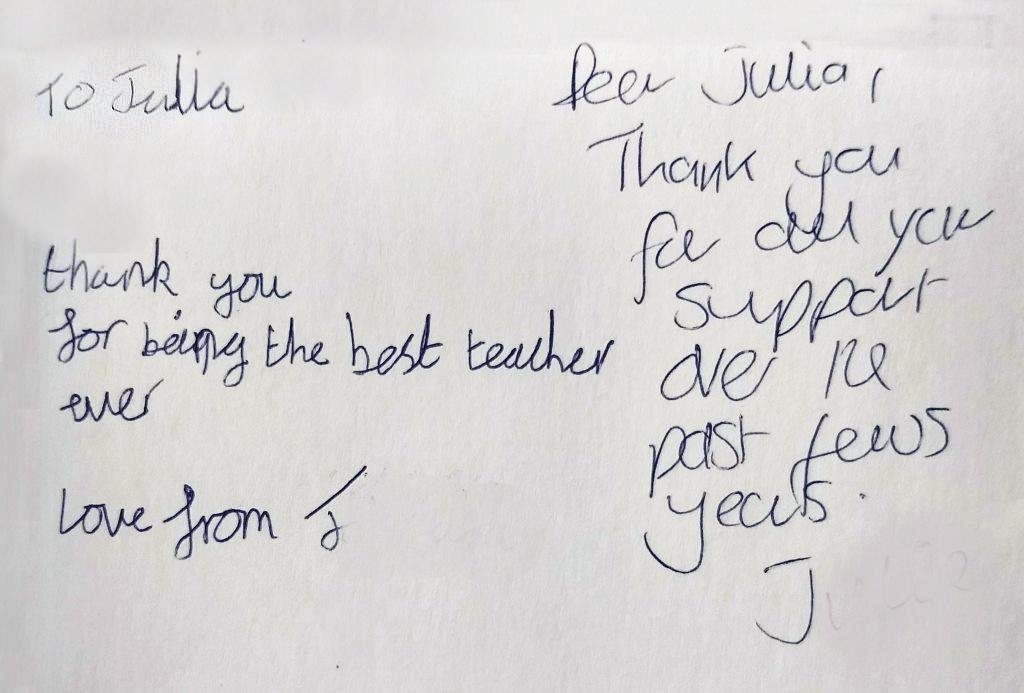 To Julia
thank you
for being the best teacher
ever
Love from J
Dear Julia,
Thank you
for all your
support
over the
past fews
years.
J